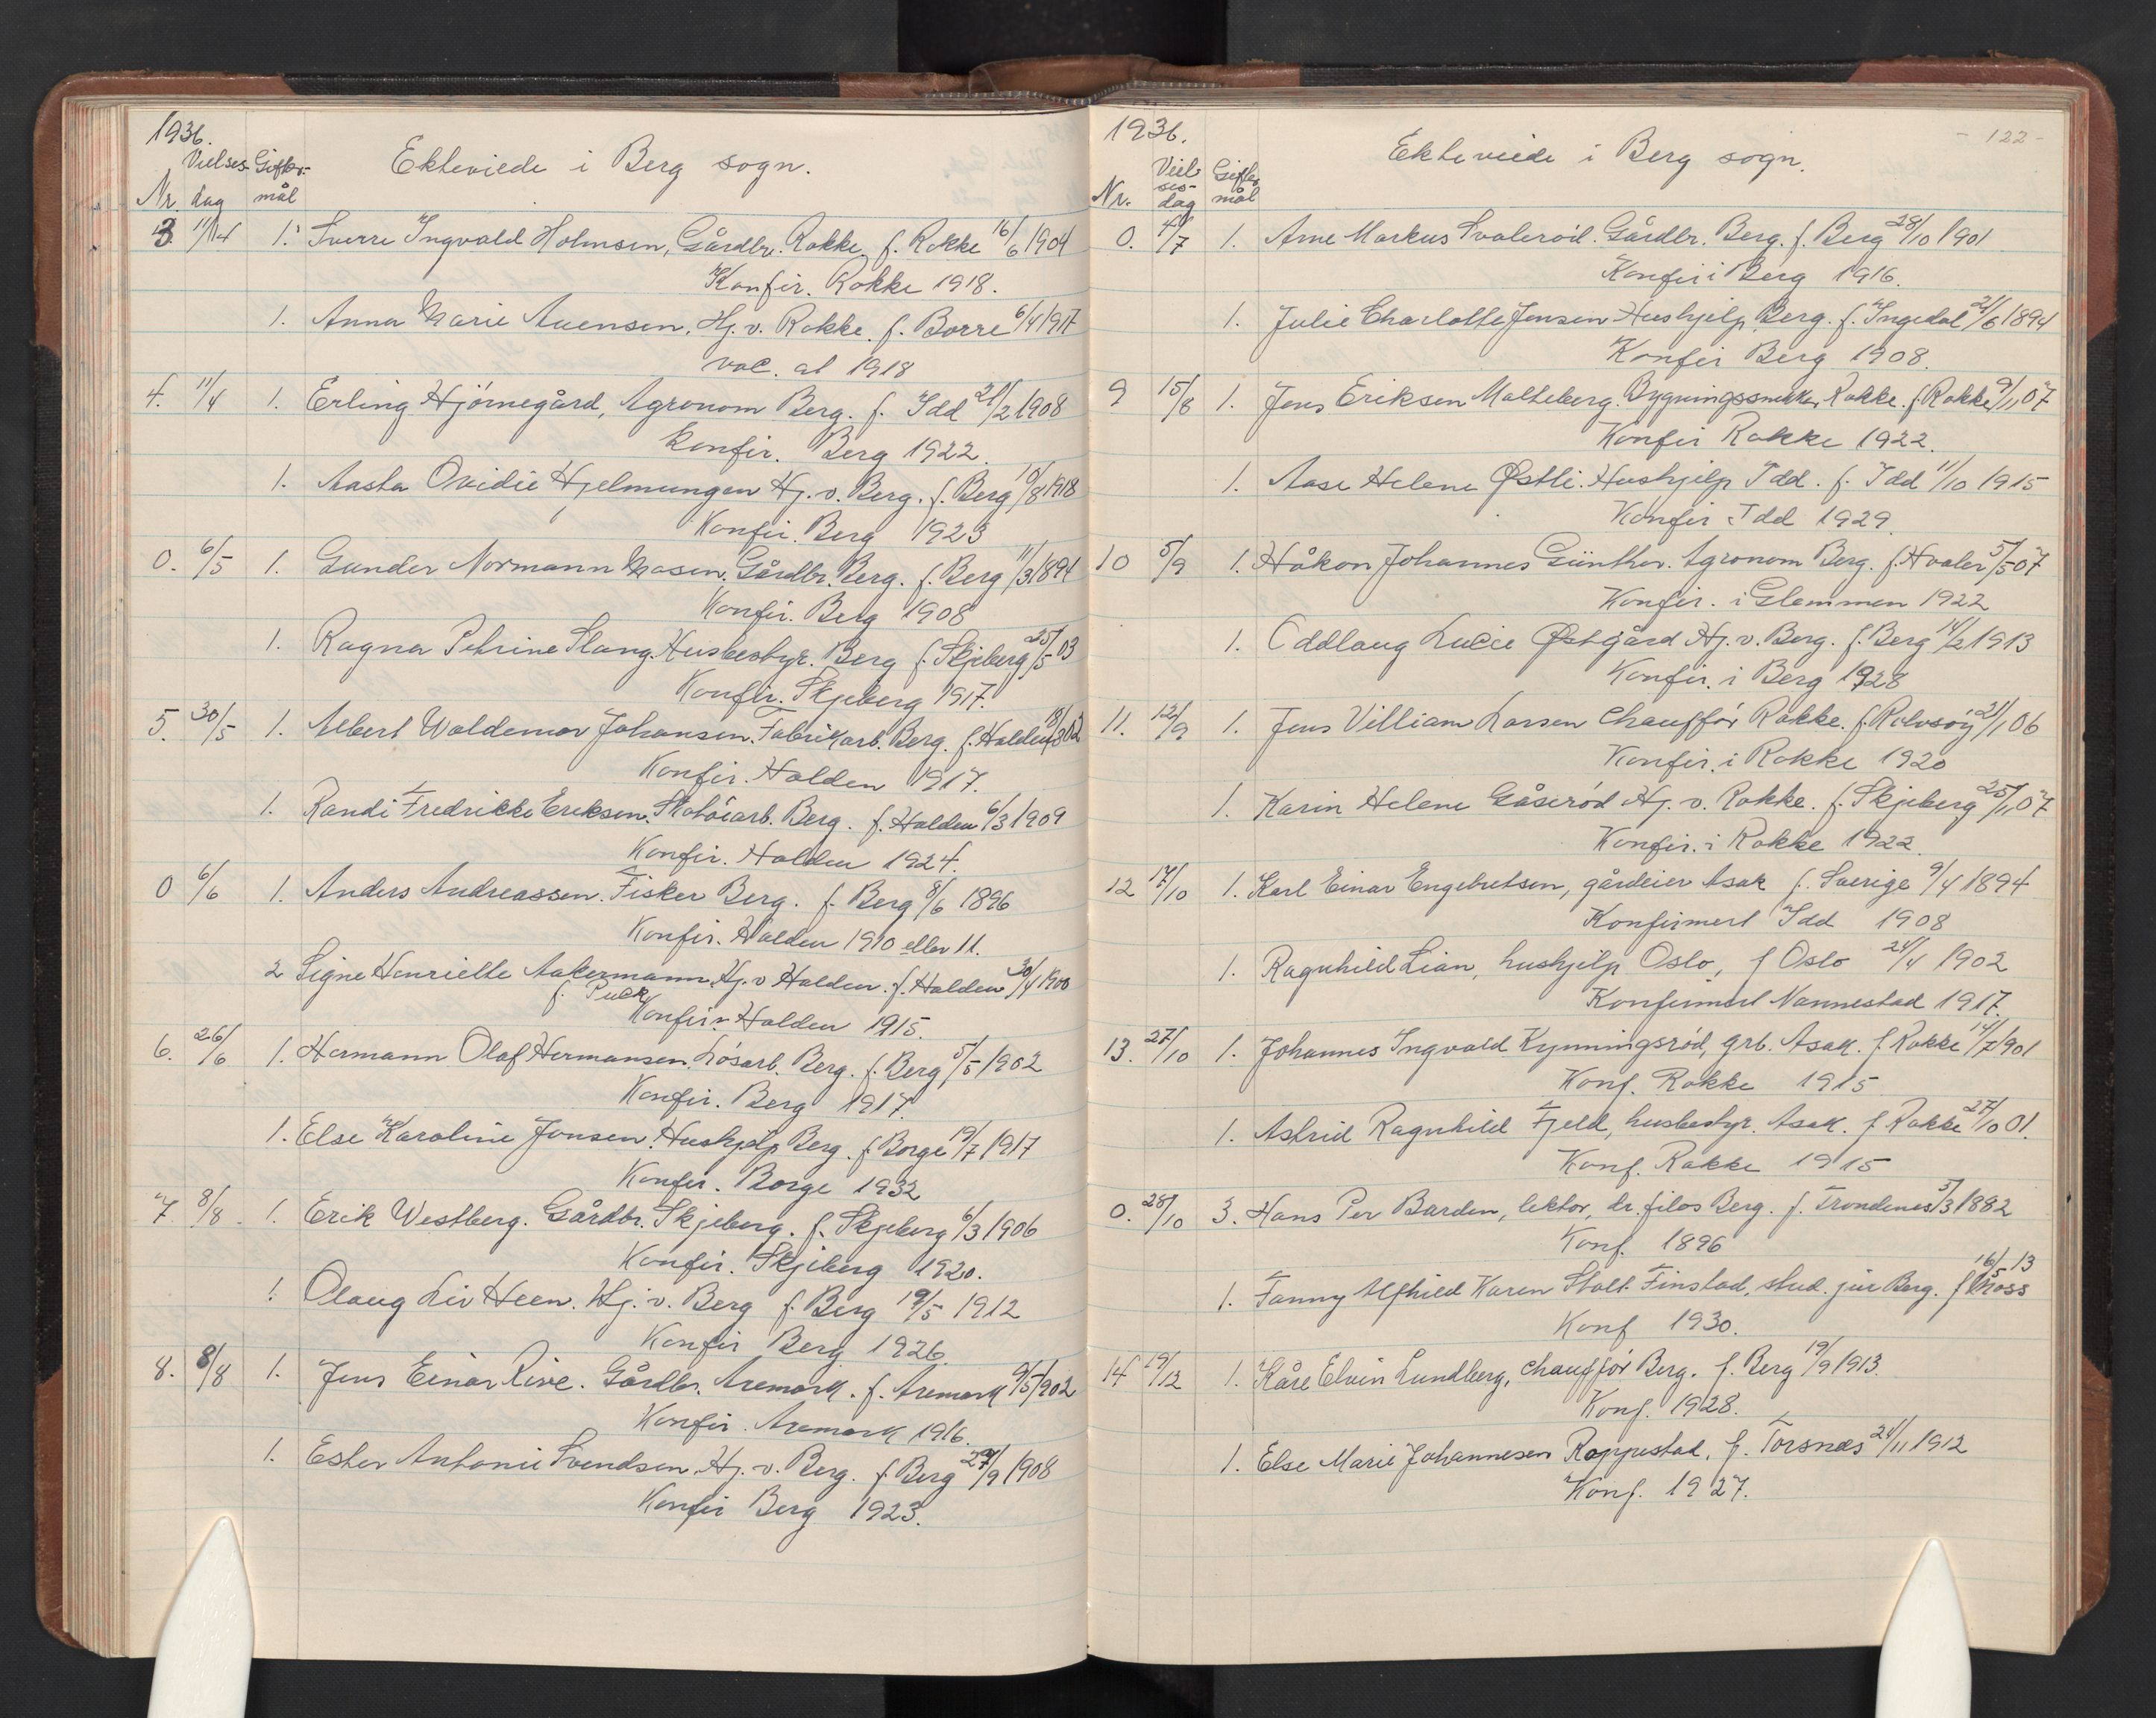 1936.
Vielses- Gifter-
Nr. dag mål
Ekteviede i Berg sogn.
3. 11/4 1. Sverre Ingvald Holmsen, Gårdbr. Rokke. f. Rokke 16/6 1904
Konfir. Rokke 1918.
1. Anna Marie Auensen, Hj. v. Rokke. f. Borre 6/4 1917
vac. at 1918
4. 11/4 1. Erling Hjørnegård, Agronom Berg. f. Idd 21/2 1908
Konfir. Berg 1922.
1. Aasta Ovidie Hjelmungen Hj. v. Berg. f. Berg 10/8 1918
Konfir. Berg 1923
0. 6/5 1. Gunder Normann Gårdbr. Berg. f. Berg 11/3 1894
Konfir. Berg 1908
1. Ragna Petrine Stang. Husbestyr. Berg f. Skjeberg 25/5 03
Konfir. Skjeberg 1917.
5. 30/5 1. Albert Waldemar Johansen. Fabrikarb. Berg. f. Halden
Konfir. Halden 1917.
1. Randi Fredrikke Eriksen. Skotøiarb. Berg. f. Halden 6/3 1909
Konfir. Halden 1924.
0 6/6 1. Anders Andreassen. Fisker Berg. f. Berg 8/6 1896
Konfir. Halden 1910 eller 11.
2 Signe Henriette Aakermann, Hj. v Halden. f. Halden 30/4 1900
f. Puck
Konfir. Halden 1915.
6. 26/6 1. Hermann Olaf Hermansen. Løsarb. Berg. f. Berg 5/5 1902
Konfir. Berg 1917.
1. Else Karoline Jensen. Hushjelp Berg. f. Borge 19/7 1917
Konfir. Borge 1932
7 8/8. 1. Erik Westberg. Gårdbr. Skjeberg. f. Skjeberg 6/3 1906
Konfir. Skjeberg 1920.
1. Olaug Liv Heen. Hj. v. Berg f. Berg 19/5 1912
Konfir Berg 1926.
8. 8/8 1. Jens Einar Live. Gårdbr. Aremark. f. Aremark 9/5 1902
Konfir. Aremark 1916.
1. Ester Antonie Svendsen. Hj. v. Berg. f. Berg 27/9 1908
Konfir Berg 1923.
1936.
- 122 -
Viel-
ses- Gifter
Nr. dag mål
Ekteviede i Berg sogn.
0. 4/7 1. Arne Markus Svalerød. Gårdbr. Berg. f. Berg 28/10 1901
Konfir i Berg 1916.
1. Julie Charlotte Jensen Hushjelp Berg. f. Ingedal 21/6 1894
Konfir Berg 1908.
9 15/8 1. Jens Eriksen Molteberg. Bygningssnekker Rokke. f. Rokke 9/11 07
Konfir Rokke 1922.
1. Aase Helene Østli. Hushjelp Idd. f. Idd 11/10 1915
Konfir Idd 1929.
10 5/9 1. Håkon Johannes Günther. Agronom Berg. f. Hvaler 5/5 07
Konfir. i Glemmen 1922
1. Oddlaug Lucie Østgård Hj. v. Berg. f. Berg 14/2 1913
Konfir. i Berg 1928
11. 12/9 1. Jens Villiam Larsen Chauffør Rokke. f. Rolvsøy 21/1 06
Konfir. i Rokke 1920
1. Karin Helene Gåserød Hj. v. Rokke. f. Skjeberg 25/11 07
Konfir. i Rokke 1922.
12 17/10 1. Karl Einar Engebretsen, gårdeier Asak f. Sverige 9/4 1894
Konfirmert Idd 1908
1. Ragnhild Lian, hushjelp Oslo, f Oslo 24/4 1902
Konfirmert Nannestad 1917.
13. 27/10 1. Johannes Ingvald Kynningsrød, grb. Asak. f. Rokke 14/7 1901
Konf. Rokke 1915
1. Astrid Ragnhild Fjeld, husbestyr. Asak. f Rokke 27/10 01.
Konf. Rokke 1915
0. 28/10 3. Hans Per Barden, lektor, dr. filos Berg. f. Trondenes 5/3 1882
Konf. 1896
1. Fanny Alfhild Karen Stolt Finstad, stud. jur Berg. f Moss 16/5 13
Konf 1930.
14 19/12 1. Kåre Elvin Lundberg, chauffør Berg. f. Berg 19/9 1913.
Konf. 1928.
1. Else Marie Johannesen Roppestad, f. Torsnes 21/11 1912
Konf. 1927.